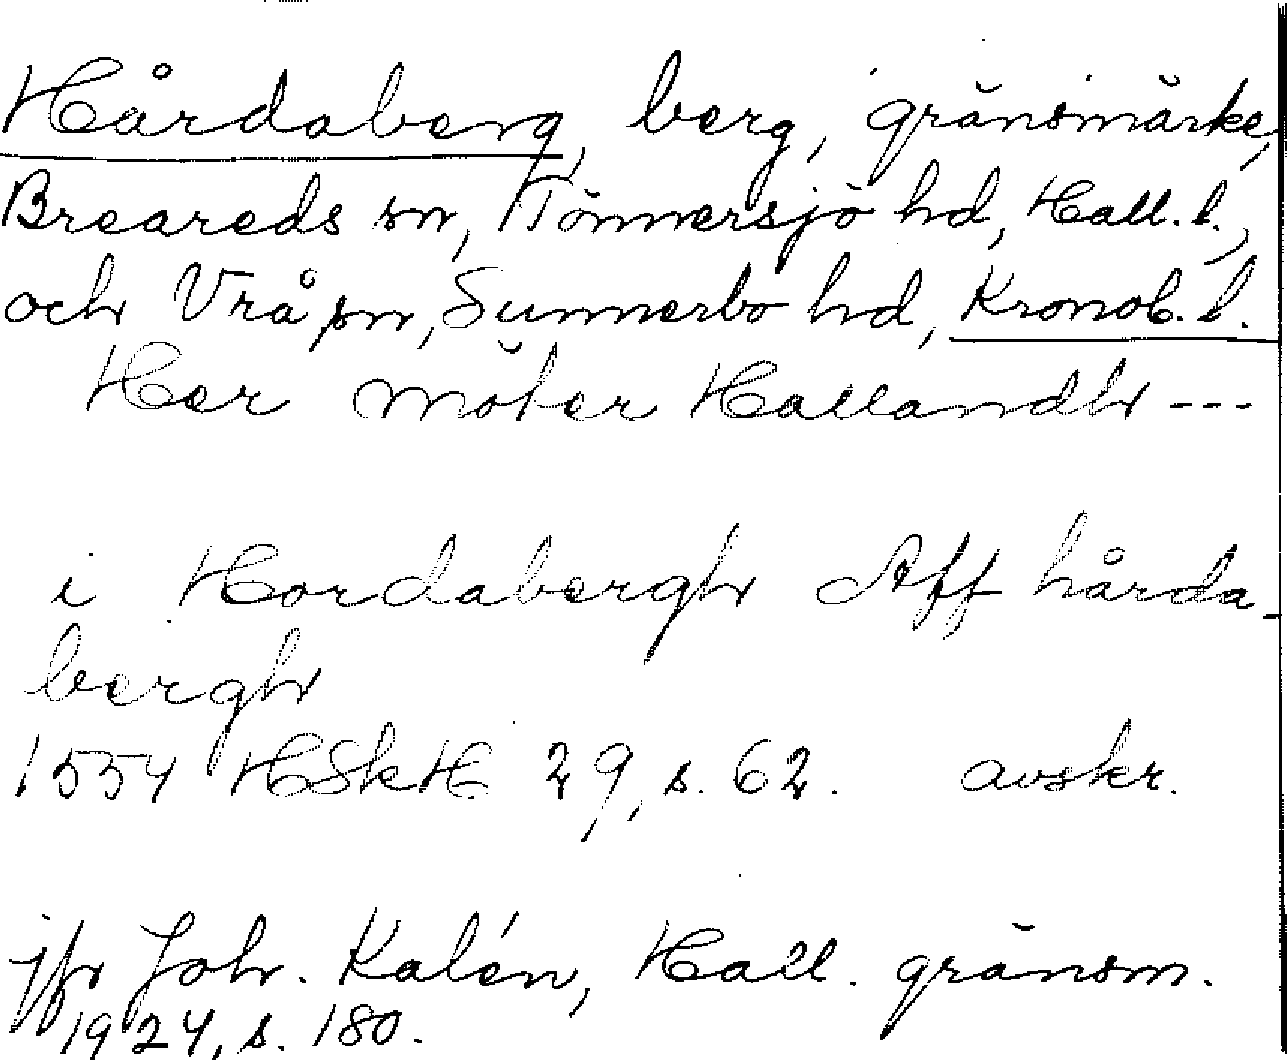 Hårdaberg, berg, gränsmärke,
Breareds sn, Tönnersjö hd, Hall. l.,
och Vrå sn, Sunnerbo hd, Kronob. l.
Her möter Hallandh ---
i Hordabergh Aff hårda-
bergh
1554 HSkH 29, s. 62. avskr.
jfr Joh. Kalén, Hall. gränsm.
1924, s. 180.